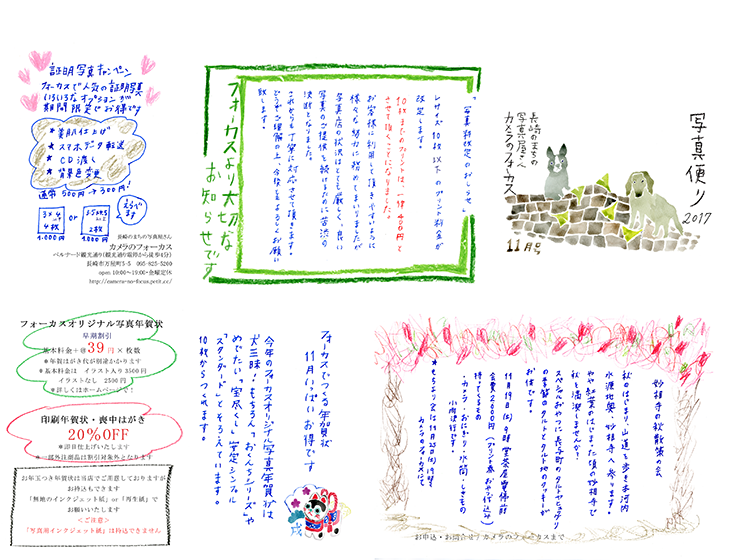 写真便り
2017
長崎のまちの
写真屋さん
カメラのフォーカス
11月号
フォーカスより大切な
お知らせです
「写真料改定のお知らせ」
Lサイズ10枚以下のプリント料金が
改定します。
10枚までのプリントは、一律400円と
させて頂くことになりました。
お客様に利用して頂きやすいように
様々な努力に務めてまいりましたが
写真店の現状はとても厳しく、良い
写真のご提供を続けるために苦渋の
決断となりました。
これからも丁寧に対応させて頂きます。
どうぞご理解の上、今後ともよろしくお願い
致します。
証明写真キャンペーン
フォーカスで人気の証明写真
いろいろなオプションが
期間限定でお得です
★美肌仕上げ
★スマホデータ転送
★CD渡し
★背景色変更
通常500円→300円!
えらべます
3×4
4枚
1.000円
or
2枚
1.000円
長崎のまちの写真屋さん
カメラのフォーカス
ベルナード観光通り(観光通り電停から徒歩4分)
長崎市万屋町5-5 095-825-5200
open 10:00～19:00・金曜定休
http://camera-no-focus.petit.cc/
妙相寺の秋散策の会
秋のはじまり、山道を歩き本河内
水源地奥、妙相寺へ参ります。
やや紅葉のはじまった頃の妙相寺で
秋を満喫しませんか?
11月19日(日)9時 蛍茶屋電停前
会費2000円
持ってくるもの
・カメラ・おにぎり・水筒・しきもの
小雨決行です。
お申込・お問合せ/カメラのフォーカスまで
フォーカスでつくる年賀状
11月いっぱいお得です
今年のフォーカスオリジナル写真年賀状は
犬三昧!もちろん、「おくんちシリーズ」や
めでたい「宝尽くし」、安定シンプル
「スタンダード」とそろえています。
10枚からつくれます。
戌
フォーカスオリジナル写真年賀状
早期割引
基本料金+@39円×枚数
＊年賀はがき代が別途かかります
＊基本料金は イラスト入り3500円
イラストなし 2500円
＊詳しくはホームページで!
印刷年賀状・喪中はがき
20%OFF
＊即日仕上げいたします
＊一部外注商品は割引対象外となります
お年玉つき年賀状は当店でご用意しておりますが
お持込みもできます
「無地のインクジェット紙」or「再生紙」で
お願いいたします
＜ご注意＞
「写真用インクジェット紙」は持込できません